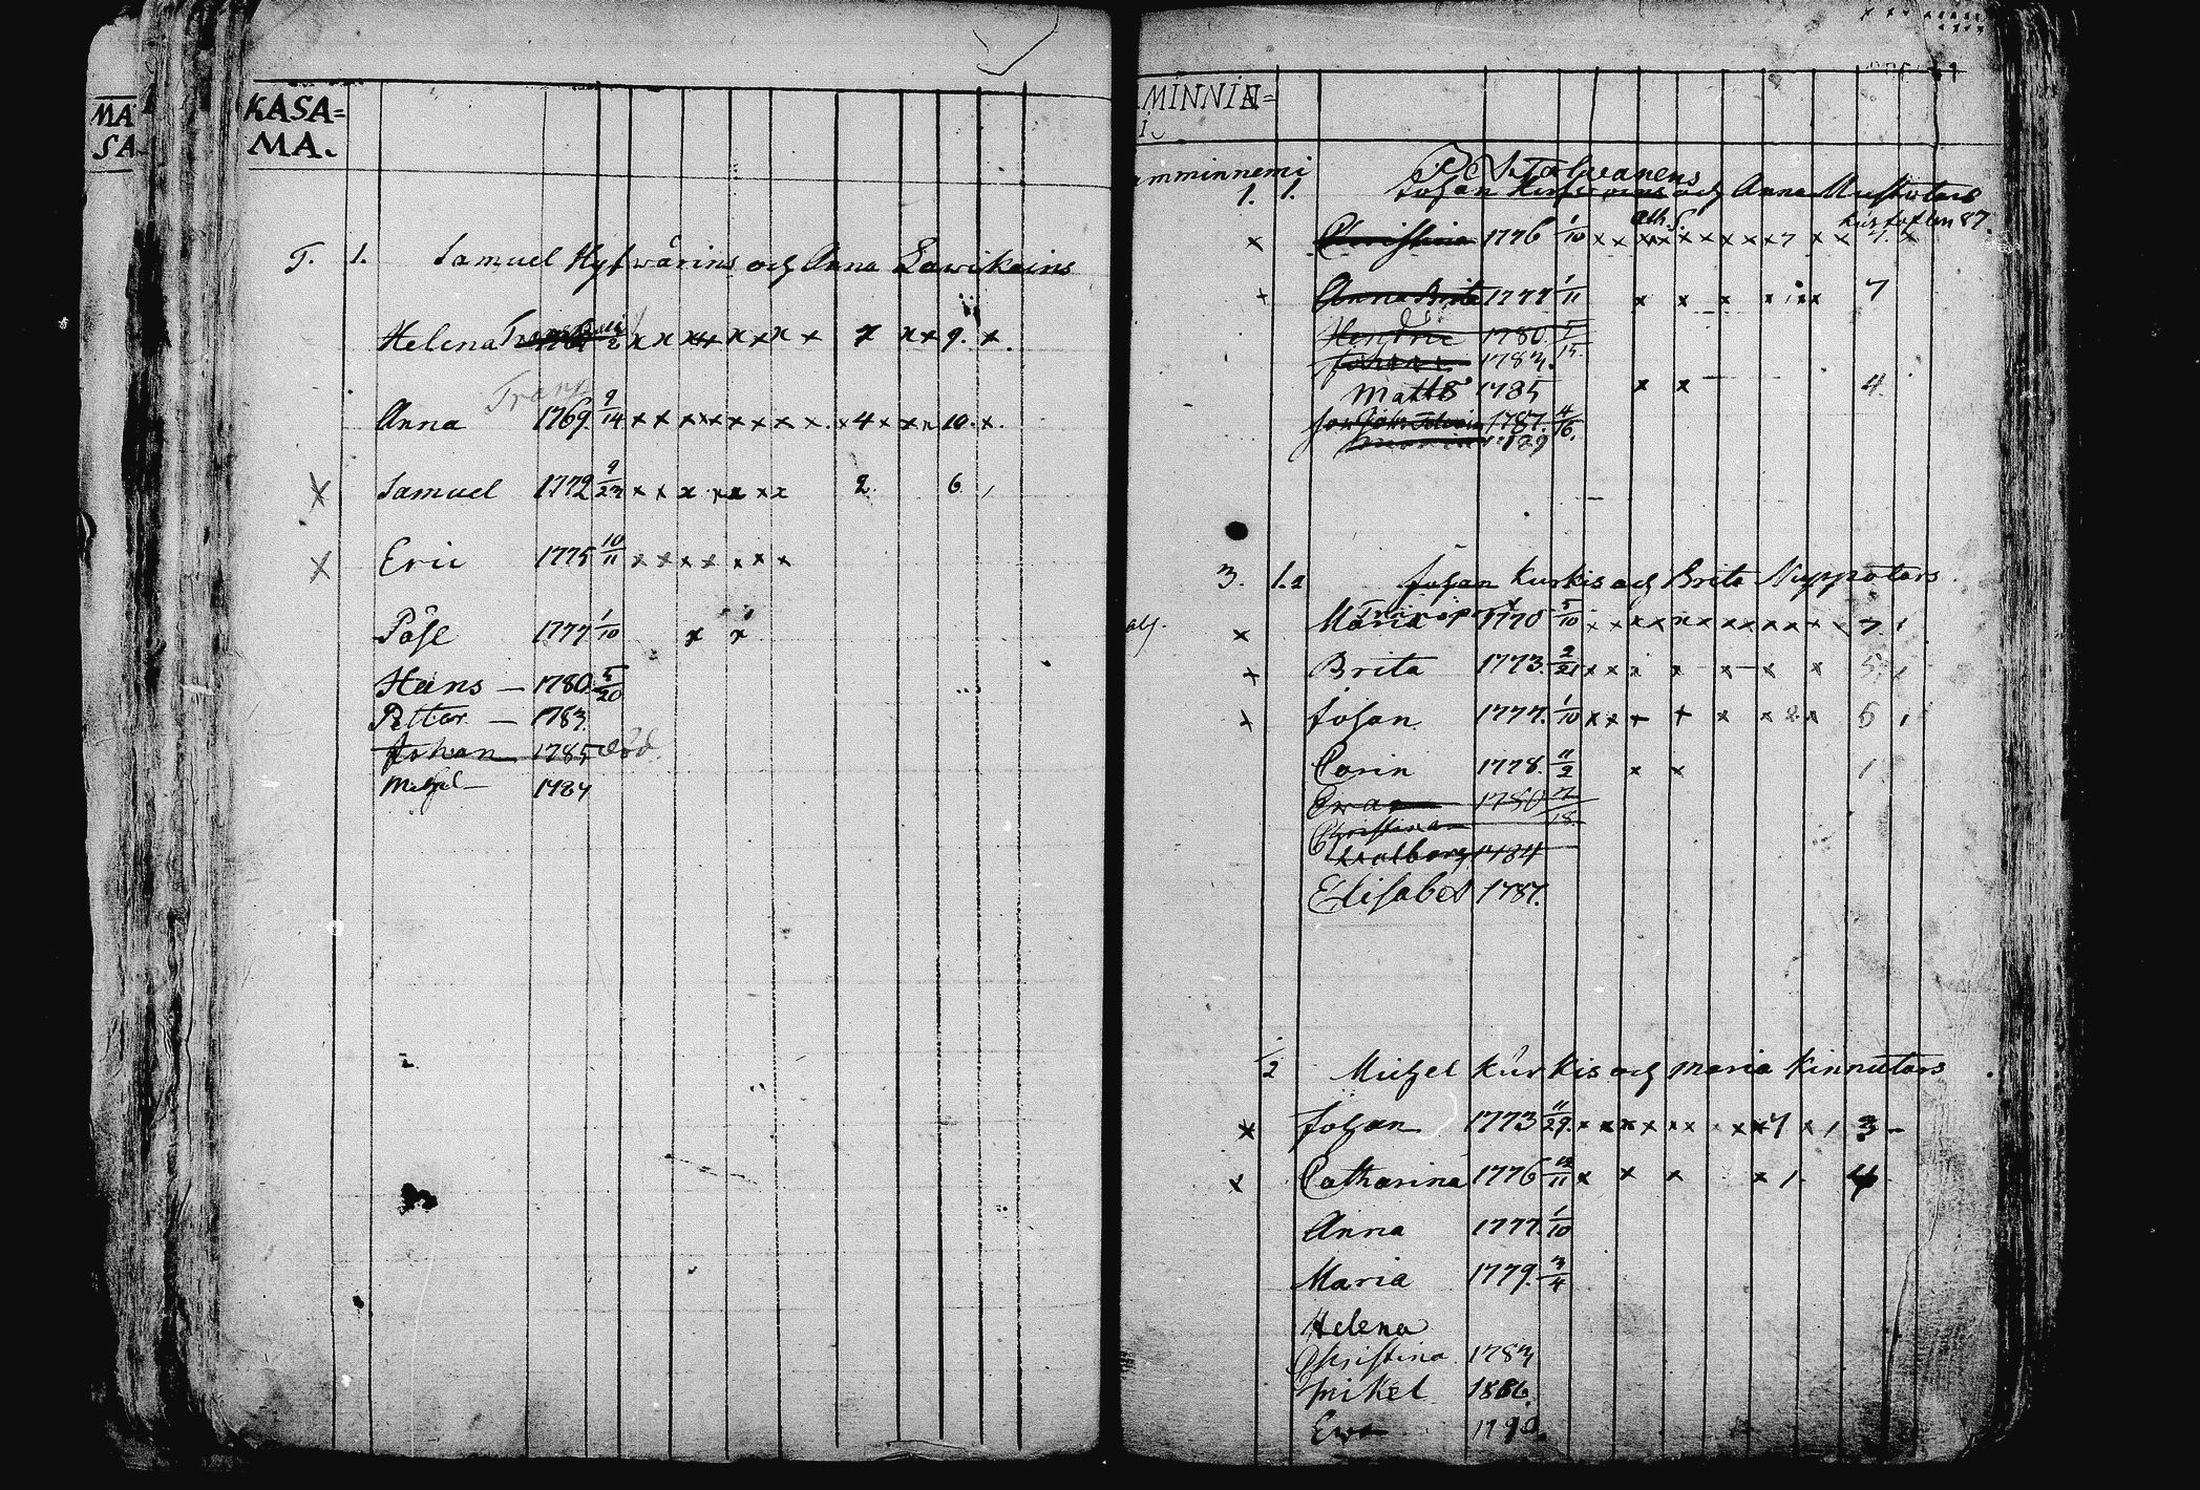 MA
SA
KASA=
MA.
T. 1. Samuel Hyfwärins och Anna Lawikains
Helena x x x x x x x x x x 9. x.
Trans
Anna 1769 9/14 x x x x x x x x x x 4 x x x 10. x.
x Samuel 1772 9/23 x x x x x x x 2 6
x Eric 1775 10/11 x x x x x x x
Påhl 1777 1/10 x x
Hans — 1780 5/20
Petter — 1783.
Johan 1785 död.
Michel — 1787
MINNIN=
amminnemi
1. 1. Johan och Anna Mustotars
x Christina 1776 1/10 x x x x x x x x x 7 x x 7. x
Anna Brita 1777 1/11 x x x x 1 x x 7
Hendric 1780. 5/15.
Johan 1783.
Matts 1785 x x 4.
1787. 4/6.
Maria 1789
3. 1. Johan Kurkis och Brita Nuppotars
x Maria 1770 5/10 x x x x x x x x x x x 7
x Brita 1773. 2/21 x x x x x x x 5
x Johan 1777. 1/10 x x x x x x 2 x 5
Carin 1778. 11/2 x x 1
Ewa 1780 7/18.
Christina
Walborg 1784
Elisabet 1787.
2 Michel Kurkis och Maria Kinnutars
x Johan 1773 11/29. x x x x x x x x 7 x 3 -
x Catharina 1776 12/11 x x x x 1. 4
Anna 1777. 1/10
Maria 1779. 3/4
Helena
Christina 1783
Mikel 1886.
Ewa 1790.